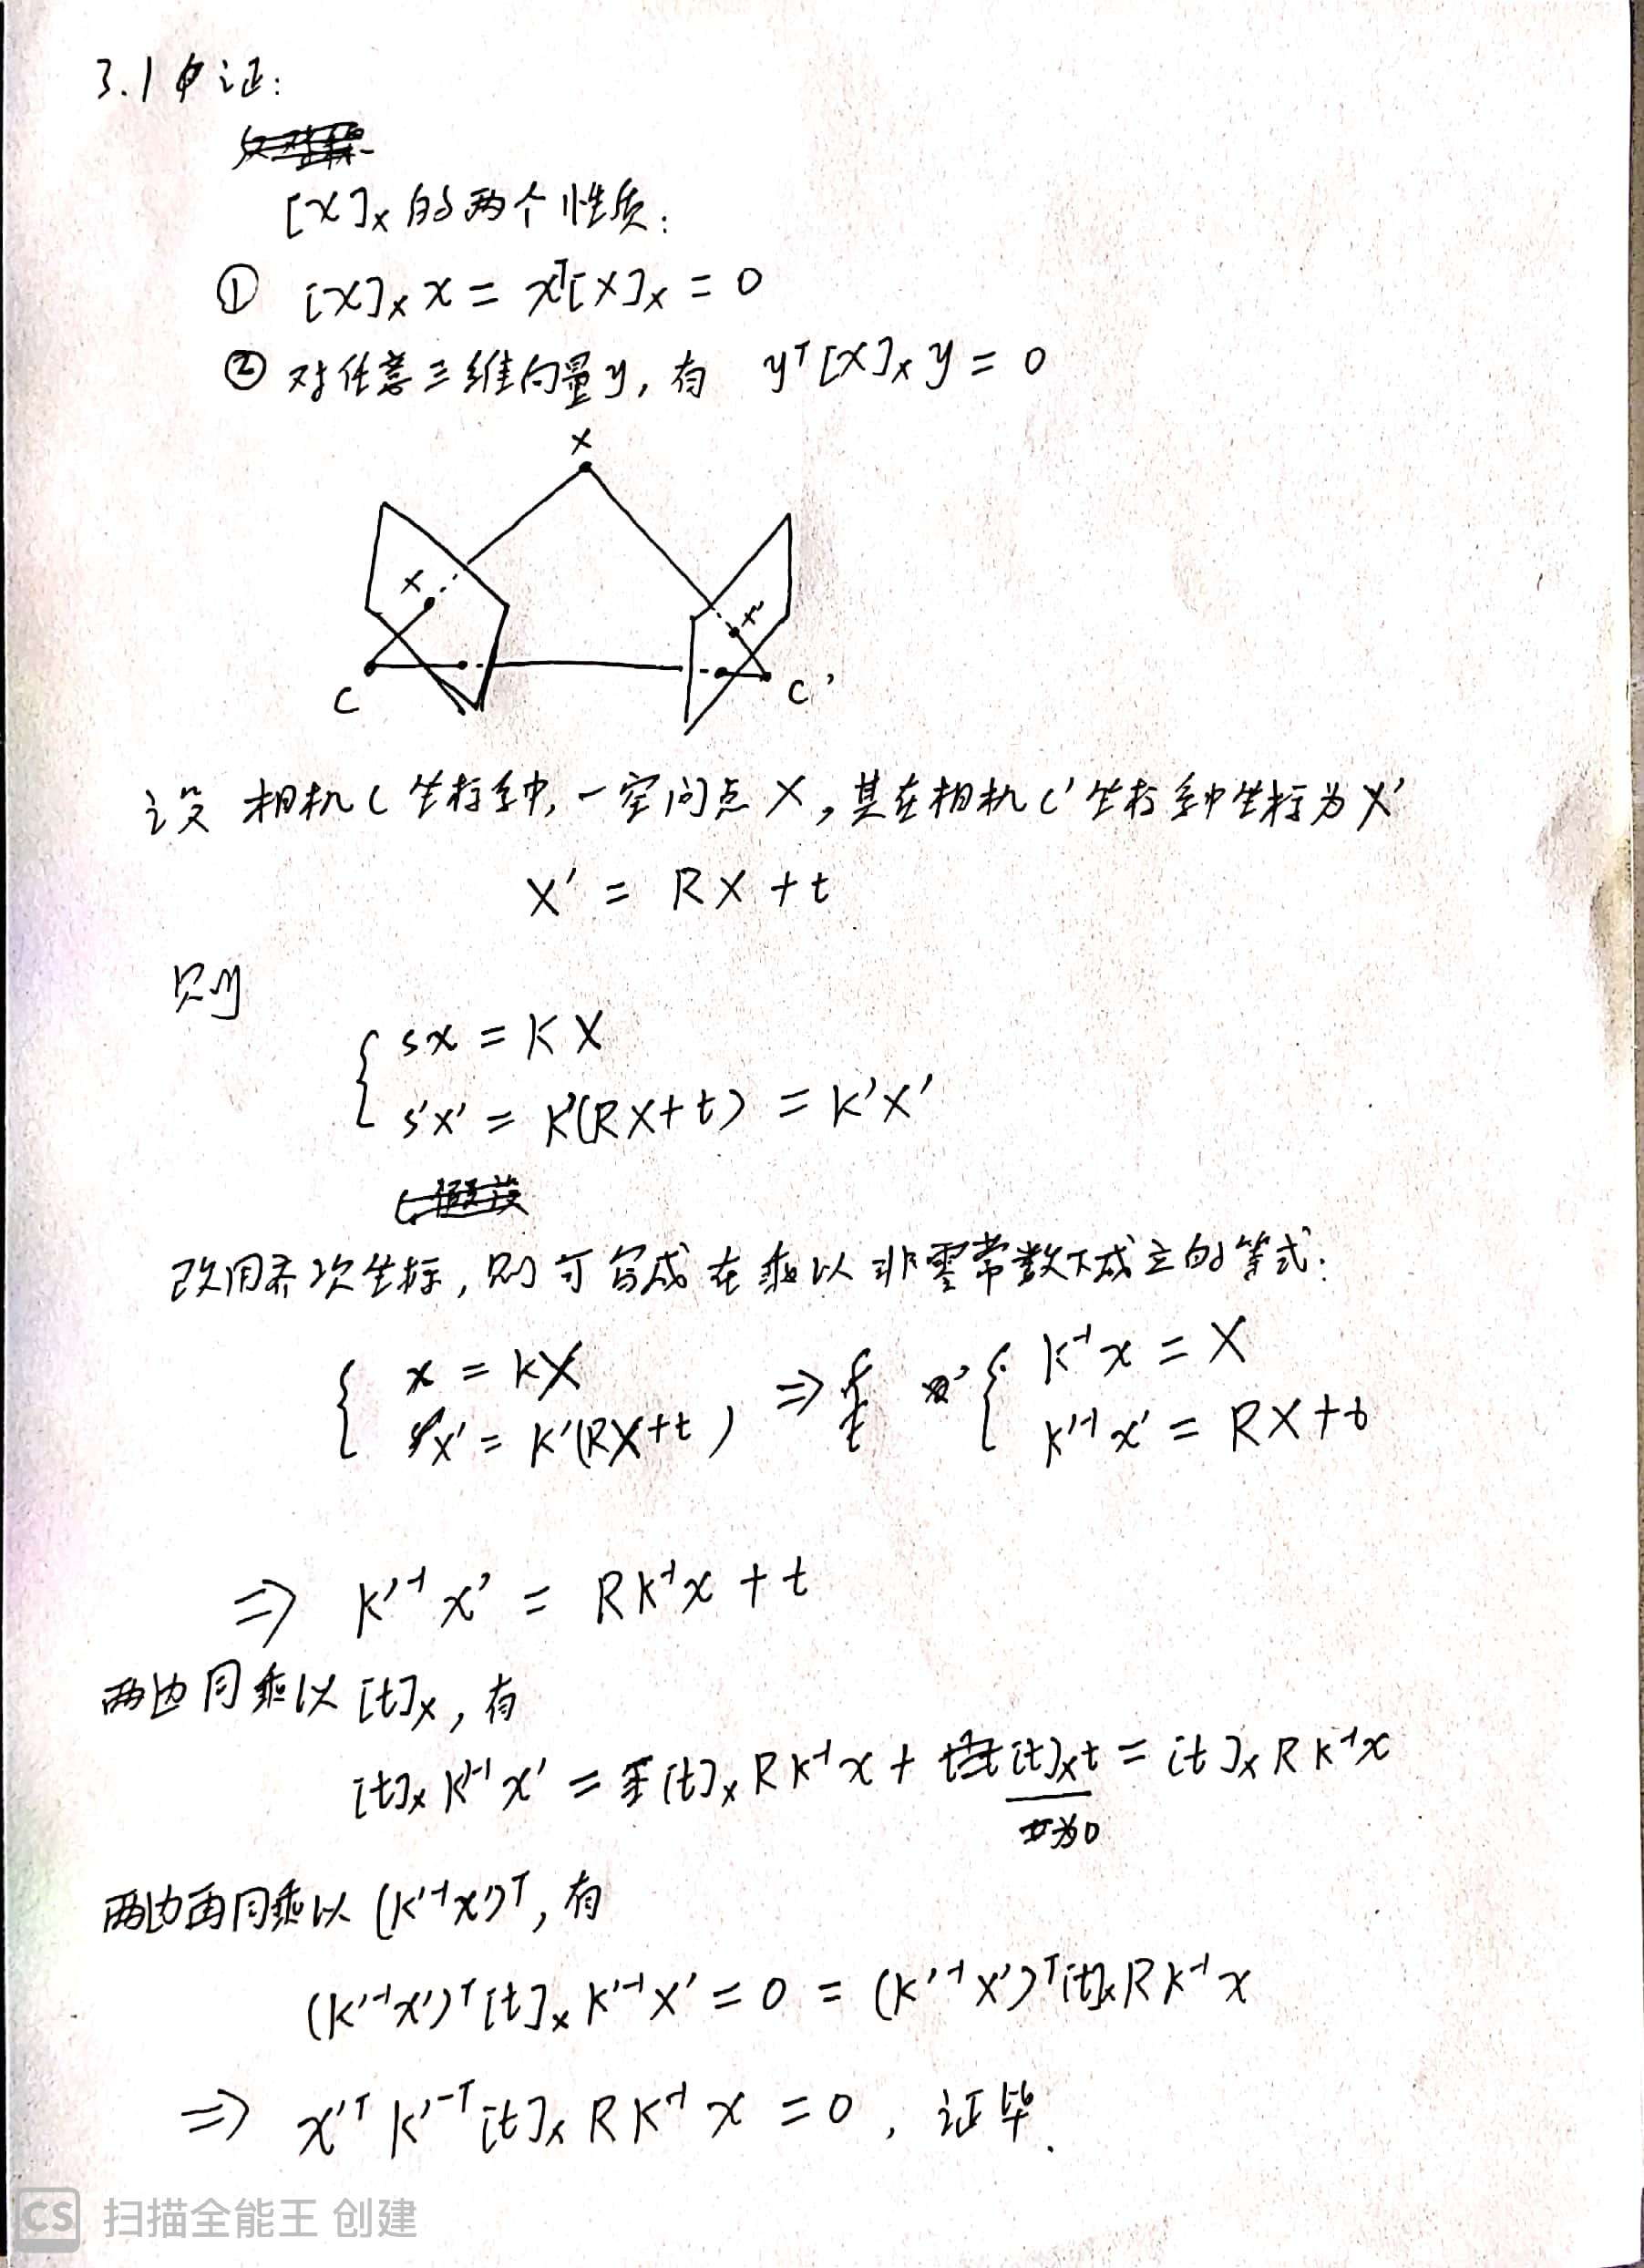 3.1 证:
[x]ₓ 的两个性质:
① [x]ₓ x = xᵀ[x]ₓ = 0
② 对任意三维向量y, 有 yᵀ[x]ₓ y = 0
X
x x'
C C'
设 相机C坐标系中, 一空间点X, 其在相机C'坐标系中坐标为X'
X' = RX + t
则
{ sx = KX
s'x' = K'(RX+t) = K'X'
改用齐次坐标, 则可写成在乘以非零常数下成立的等式:
{ x = KX ⇒ { K⁻¹x = X
x' = K'(RX+t) K'⁻¹x' = RX+t
⇒ K'⁻¹x' = RK⁻¹x + t
两边同乘以[t]ₓ, 有
[t]ₓ K'⁻¹x' = [t]ₓ RK⁻¹x + [t]ₓt = [t]ₓ RK⁻¹x
为0
两边再同乘以 (K'⁻¹x')ᵀ, 有
(K'⁻¹x')ᵀ[t]ₓ K'⁻¹x' = 0 = (K'⁻¹x')ᵀ[t]ₓRK⁻¹x
⇒ x'ᵀ K'⁻ᵀ[t]ₓ RK⁻¹ x = 0, 证毕.
CS 扫描全能王 创建